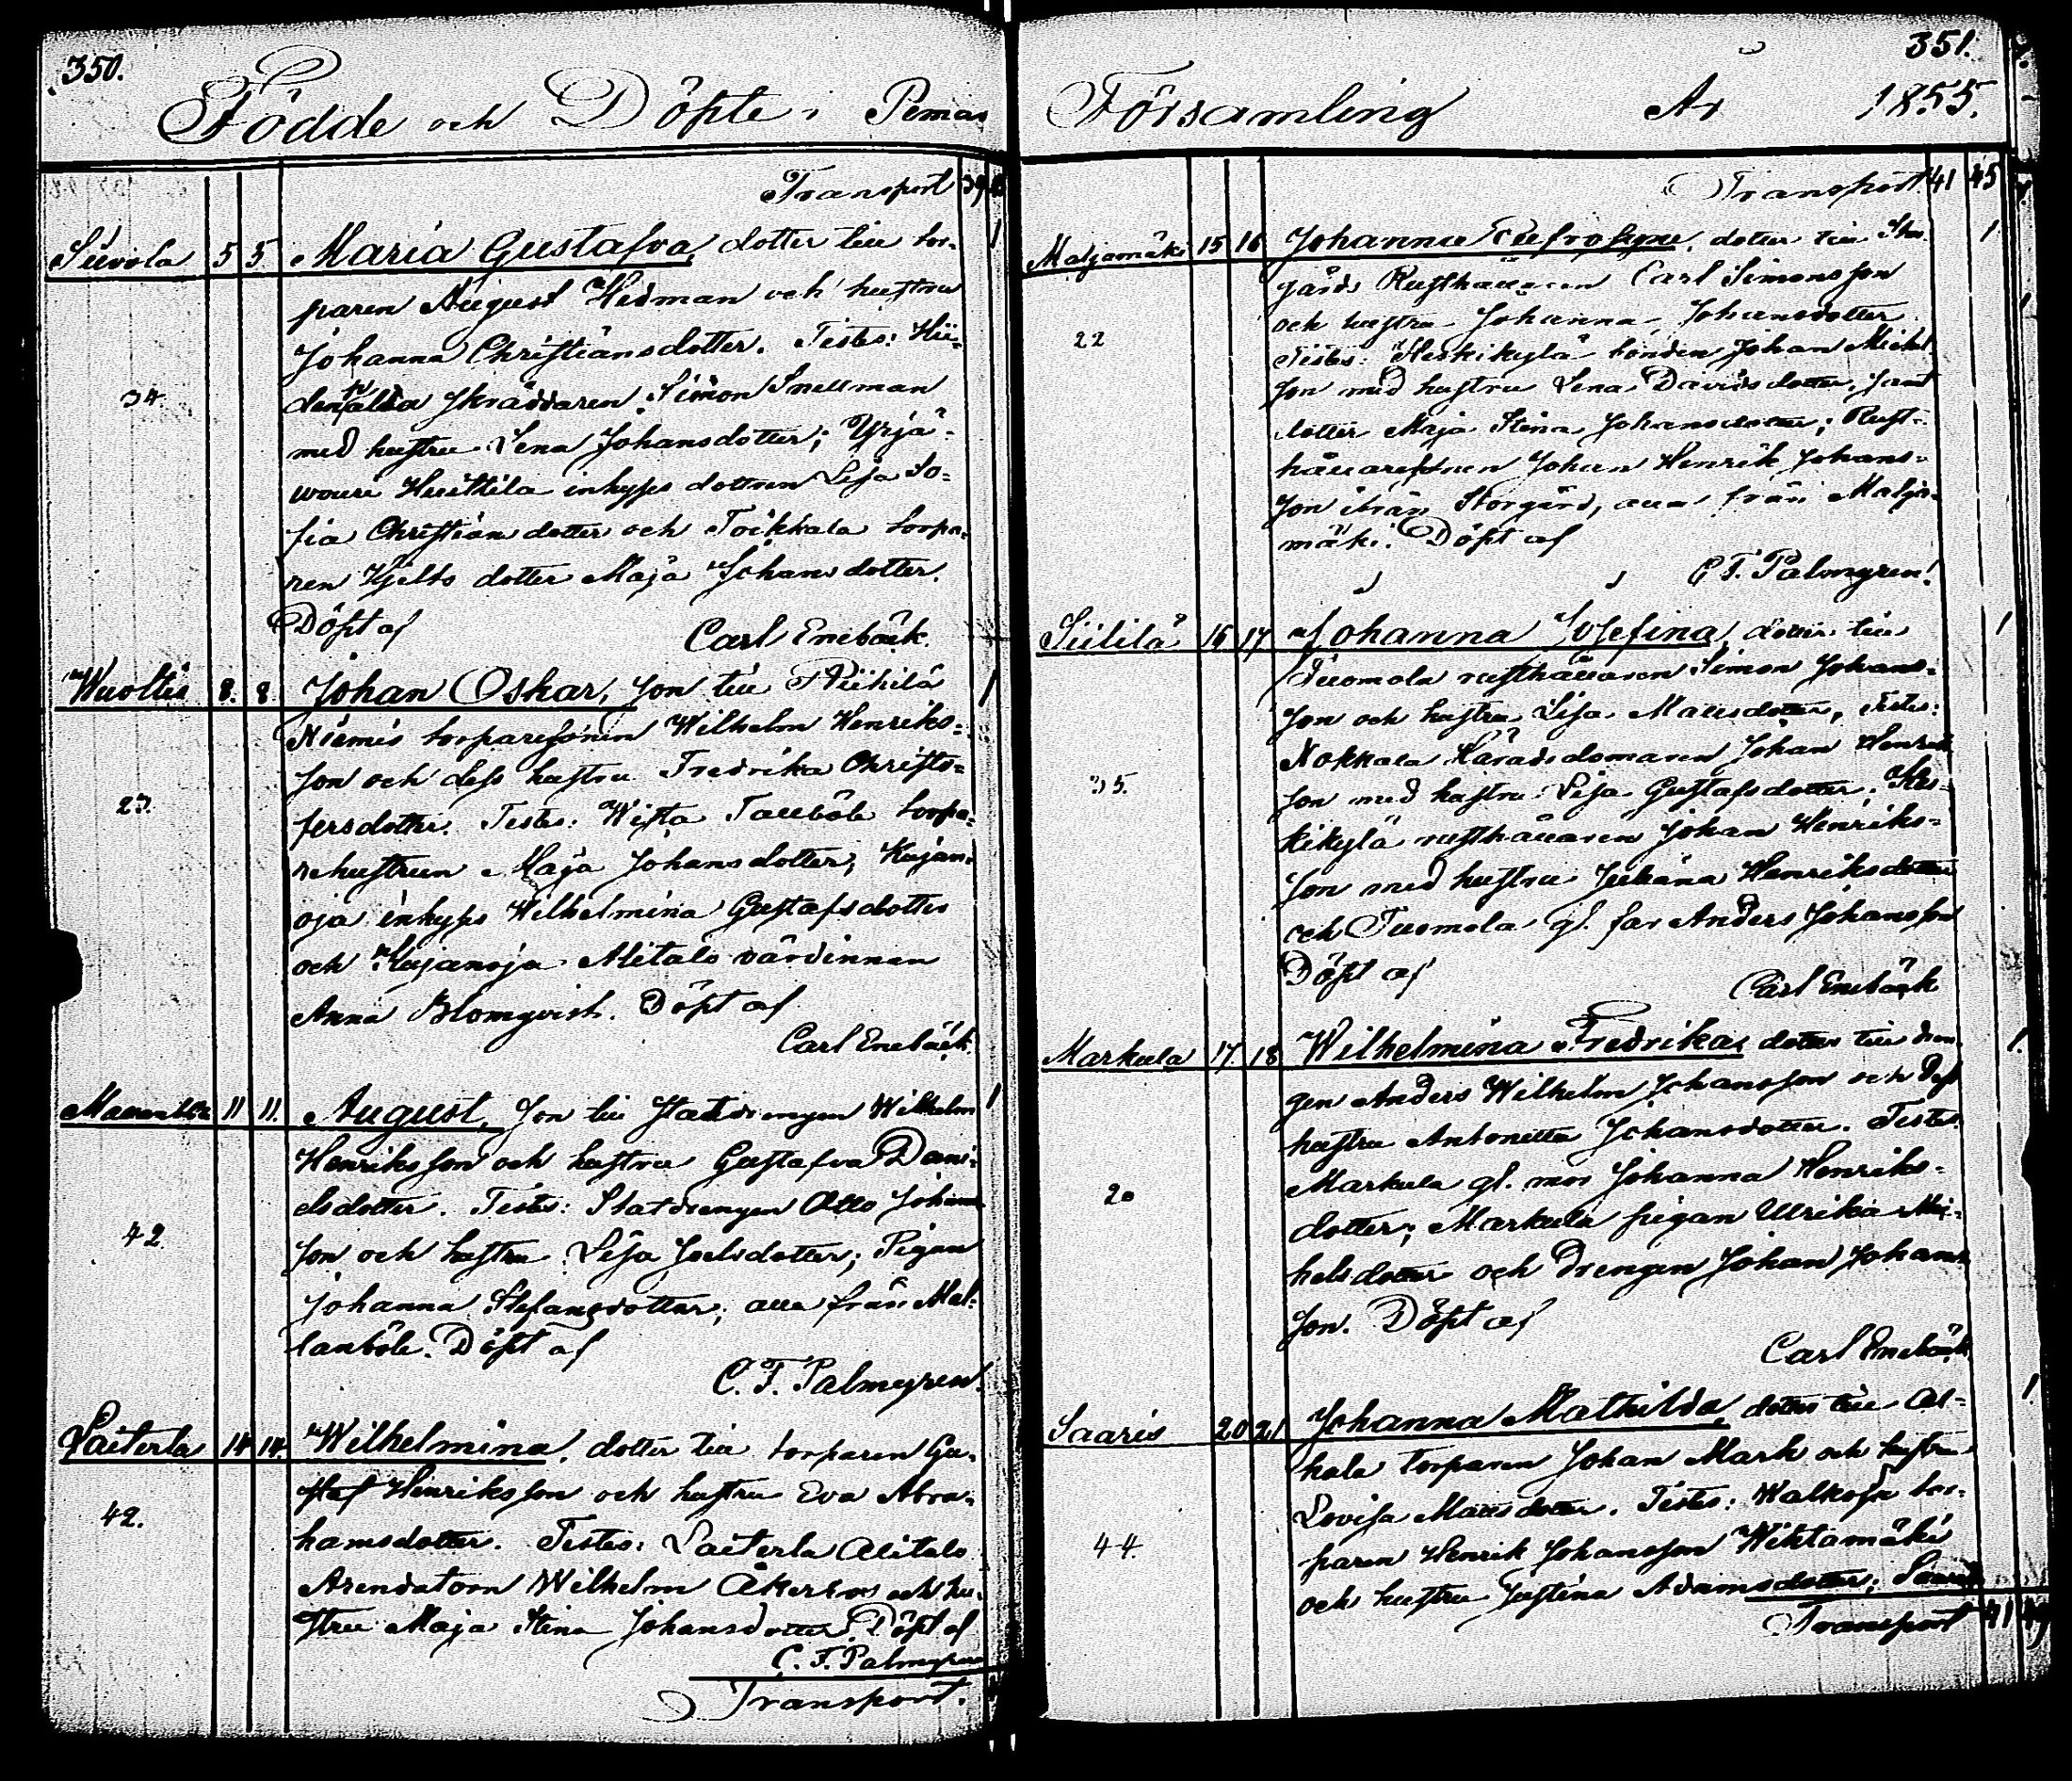 350.
Födde och Döpte i Pemar
Transport 39
Siivola 5 5. Maria Gustafva, dotter till tor-
paren August Hedman och hustru
Johanna Christiansdotter. Testes: Hii-
34. Skräddaren Simon Snellman
med hustru Lena Johansdotter; Yrjä-
wouri Huittila inhyses dottren Lisa So-
fia Christiansdotter och Toikkala torpa-
ren Hjelts dotter Maja Johansdotter.
Döpt af Carl Enebäck.
Wuoltis 8. 8. Johan Oskar, son till Pukila 1
Niemis torparesonen Wilhelm Henriks-
son och dess hustru Fredrika Christo-
27. fersdotter. Testes: Wista Tallböle torpa-
rehustrun Maja Johansdotter; Kujan-
oja inhyses Wilhelmina Gustafsdotter
och Kujanoja Alitalo värdinnan
Anna Blomqvist. Döpt af
Carl Enebäck.
11 11. August, Son till Statdrengen Wilhelm 1
Henriksson och hustru Gustafva Dani-
elsdotter. Testes: Statdrengen Otto Johans-
42. son och hustru Lisa Joelsdotter; Pigan
Johanna Stefansdotter, alla från Mel-
lanböle. Döpt af
C. F. Palmgren.
Laiterla 14 14. Wilhelmina, dotter till torparen Gu-
staf Henriksson och hustru Eva Abra-
42. hamsdotter. Testes: Laiterla Alitalo
Arendatorn Wilhelm Åkerros och hu-
stru Maja Stina Johansdotter. Döpt af
C. F. Palmgren
Transport.
351.
Församling År 1855.
Transport 41 45
Maljamäki 15 16 Johanna Eufrosyne, dotter till Stor- 1
gårds Rusthållaren Carl Simonsson
22 och hustru Johanna Johansdotter.
Testes: Heskikylä bonden Johan Michels-
son med hustru Lena Davidsdotter, samt
dotter Maja Stina Johansdotter; Rust-
hållaresonen Johan Henrik Johans-
son ifrån Storgård, alla från Malja-
mäki. Döpt af
C F. Palmgren.
Siililä 16 17 Johanna Josefina, dotter till 1
Tuomola rusthållaren Simon Johans-
son och hustru Lisa Mattsdotter, Testes:
Nokkala Häradsdomaren Johan Henriks-
35. son med hustru Lisa Gustafsdotter, Kes-
kikylä rusthållaren Johan Henriks-
son med hustru Juliana Henriksdotter
och Tuomola gl. far Anders Johansson
Döpt af
Carl Enebäck
Markula 17. 18 Wilhelmina Fredrika, dotter till dren- 1.
gen Anders Wilhelm Johansson och dess
hustru Antonetta Johansdotter. Testes:
20 Markula gl. mor Johanna Henriks-
dotter; Markula pigan Ulrika Mi-
kelsdotter och Drengen Johan Johans-
son. Döpt af
Carl Enebäck.
Saaris 20 21 Johanna Mathilda, dotter till Al- 1
hala torparen Johan Mark och hustru
Lovisa Mattsdotter. Testes: Walkoja tor-
44. paren Henrik Johansson Wihtamäki
och hustru Justina Adamsdotter; Saaris
Transport 41 49